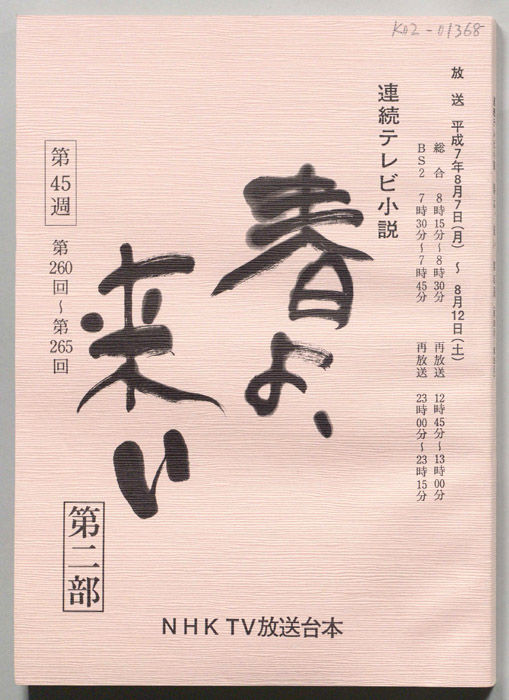 K02-01368
放送 平成7年8月7日(月)~ 8月12日(土)
総合 8時15分~8時30分 再放送 12時45分~13時00分
BS2 7時30分~7時45分 再放送 23時00分~23時15分
連続テレビ小説
春よ、
来い
第45週
第260回~第265回
第二部
NHK TV放送台本